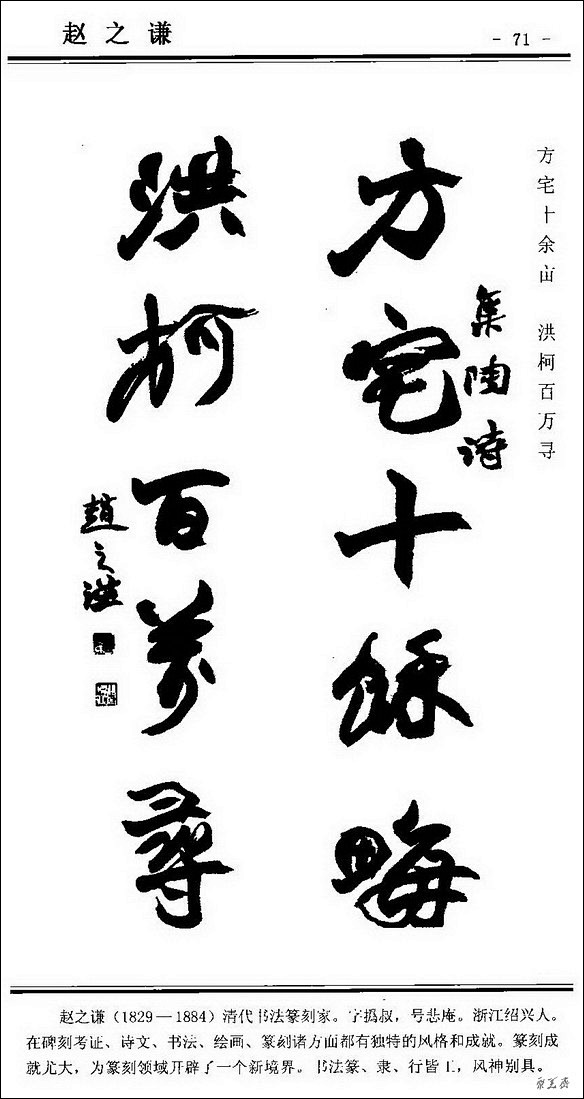 赵之谦
- 71 -
方宅十余亩　洪柯百万寻
方宅十餘畮
集陶诗
洪柯百万尋
趙之谦
赵之谦（1829—1884）清代书法篆刻家。字撝叔，号悲庵。浙江绍兴人。
在碑刻考证、诗文、书法、绘画、篆刻诸方面都有独特的风格和成就。篆刻成
就尤大，为篆刻领域开辟了一个新境界。书法篆、隶、行皆工，风神别具。